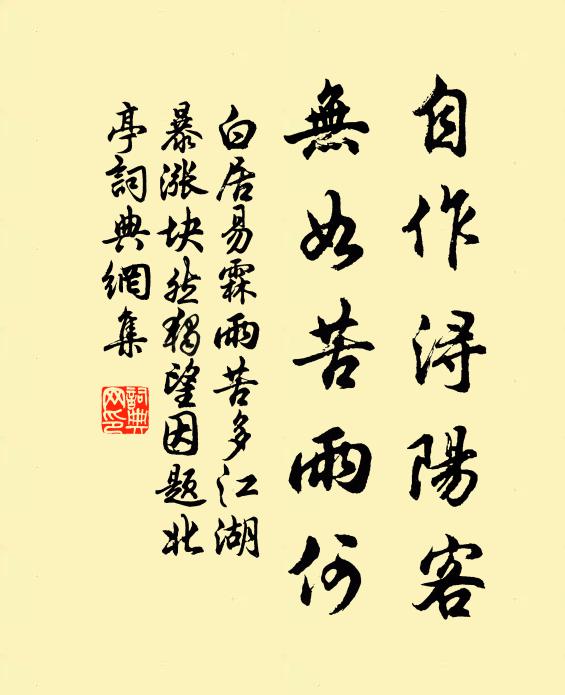 自作浔陽客
無如苦雨何
白居易霖雨苦多江湖
暴涨块然獨望因題北
亭詞典網集
詞典
网印